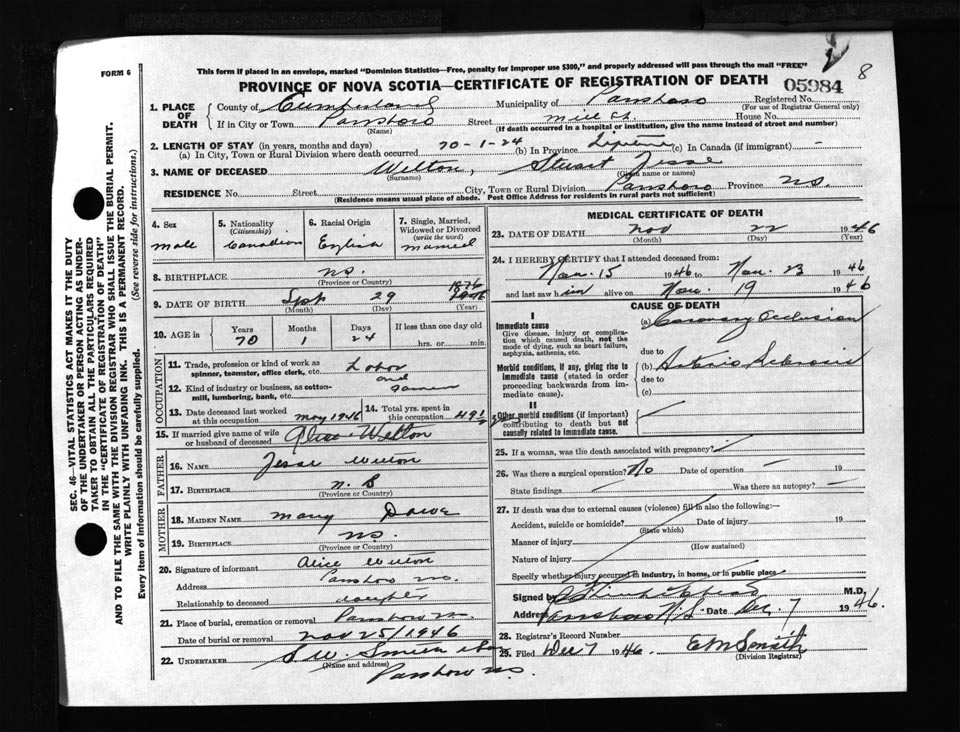 FORM 6
This form if placed in an envelope, marked "Dominion Statistics—Free, penalty for improper use $300," and properly addressed will pass through the mail "FREE"
8
PROVINCE OF NOVA SCOTIA—CERTIFICATE OF REGISTRATION OF DEATH
05984
1. PLACE OF DEATH County of Cumberland Municipality of Parrsboro Registered No.
(For use of Registrar General only)
If in City or Town Parrsboro Street Mill St. House No.
(Name) (If death occurred in a hospital or institution, give the name instead of street and number)
2. LENGTH OF STAY (in years, months and days)
(a) In City, Town or Rural Division where death occurred 70-1-24 (b) In Province Lifetime (c) In Canada (if immigrant) —
3. NAME OF DECEASED Welton, Stuart Jesse
(Surname) (Given name or names)
RESIDENCE No. Street City, Town or Rural Division Parrsboro Province N.S.
(Residence means usual place of abode. Post Office Address for residents in rural parts not sufficient)
4. Sex Male
5. Nationality (Citizenship) Canadian
6. Racial Origin English
7. Single, Married, Widowed or Divorced (write the word) Married
8. BIRTHPLACE N.S.
(Province or Country)
9. DATE OF BIRTH Sept 29 1876
(Month) (Day) (Year)
10. AGE in Years 70 Months 1 Days 24 If less than one day old hrs. or min.
OCCUPATION
11. Trade, profession or kind of work as spinner, teamster, office clerk, etc. Labor
and
12. Kind of industry or business, as cotton-mill, lumbering, bank, etc.
13. Date deceased last worked at this occupation May 1946
14. Total yrs. spent in this occupation 49½
15. If married give name of wife or husband of deceased Alice Welton
FATHER
16. NAME Jesse Welton
17. BIRTHPLACE N.S
(Province or Country)
MOTHER
18. MAIDEN NAME Mary
19. BIRTHPLACE N.S.
(Province or Country)
20. Signature of informant Alice Welton
Address Parrsboro N.S.
Relationship to deceased daughter
21. Place of burial, cremation or removal Parrsboro N.S.
Date of burial or removal Nov 25/1946
22. UNDERTAKER S.W. Smith & Son
(Name and address)
Parrsboro N.S.
MEDICAL CERTIFICATE OF DEATH
23. DATE OF DEATH Nov 22 1946
(Month) (Day) (Year)
24. I HEREBY CERTIFY that I attended deceased from:
Nov. 15 1946 to Nov. 23 1946
and last saw him alive on Nov. 19 1946
CAUSE OF DEATH
I
Immediate cause
Give disease, injury or complication which caused death, not the mode of dying, such as heart failure, asphyxia, asthenia, etc.
(a) Coronary Occlusion
due to
Morbid conditions, if any, giving rise to immediate cause (stated in order proceeding backwards from immediate cause).
(b) Arterio Sclerosis
due to
(c)
II
Other morbid conditions (if important) contributing to death but not causally related to immediate cause.
25. If a woman, was the death associated with pregnancy?
26. Was there a surgical operation? No Date of operation — 19
State findings — Was there an autopsy? —
27. If death was due to external causes (violence) fill in also the following:—
Accident, suicide or homicide? Date of injury 19
(State which)
Manner of injury
(How sustained)
Nature of injury
Specify whether injury occurred in industry, in home, or in public place
Signed by M.D.
Address Parrsboro N.S. Date Dec. 7 1946.
28. Registrar's Record Number
29. Filed Dec 7 1946.
(Division Registrar)
SEC. 46—VITAL STATISTICS ACT MAKES IT THE DUTY
OF THE UNDERTAKER OR PERSON ACTING AS UNDER-
TAKER TO OBTAIN ALL THE PARTICULARS REQUIRED
IN THE "CERTIFICATE OF REGISTRATION OF DEATH"
AND TO FILE THE SAME WITH THE DIVISION REGISTRAR WHO SHALL ISSUE THE BURIAL PERMIT.
WRITE PLAINLY WITH UNFADING INK. THIS IS A PERMANENT RECORD.
Every item of information should be carefully supplied. (See reverse side for instructions.)